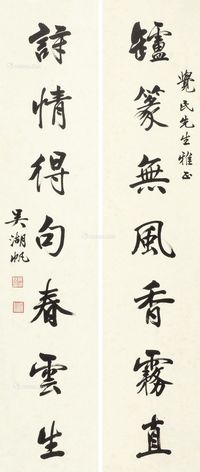 覺民先生雅正
鑪篆無風香霧直
詩情得句春雲生
吳湖帆